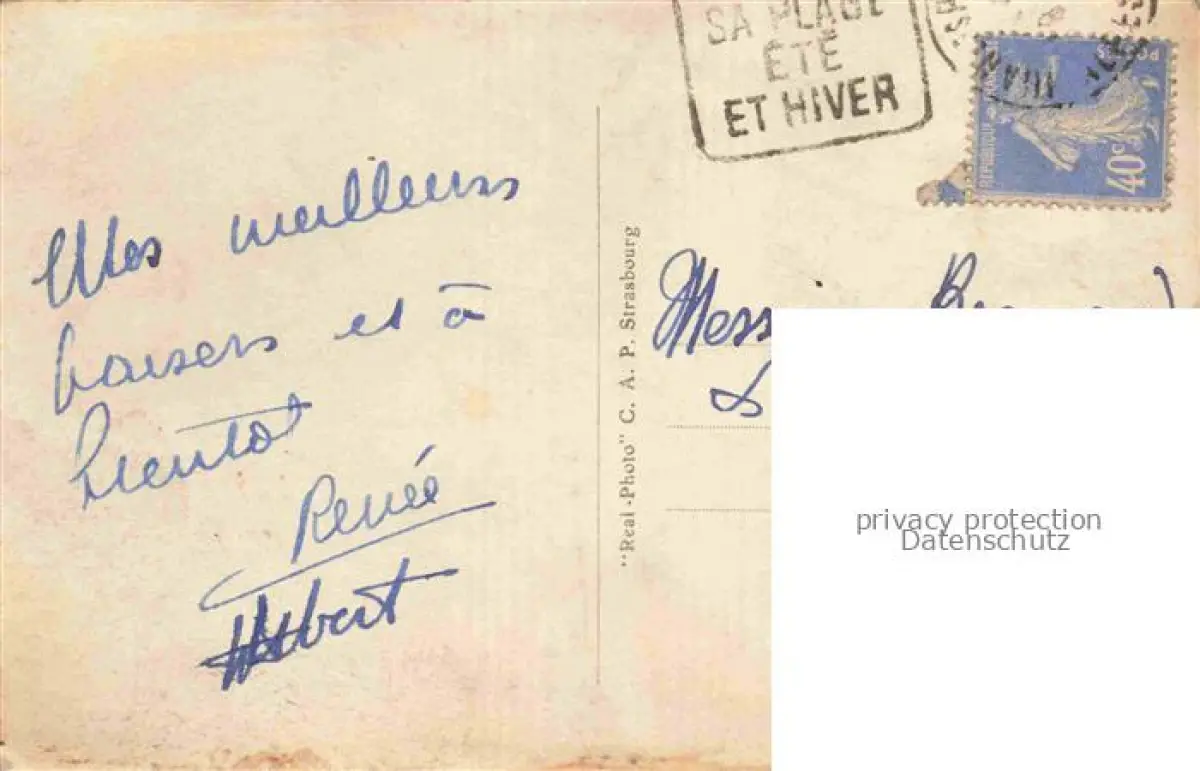 SA PLAGE
ÉTÉ
ET HIVER
REPUBLIQUE
POSTES
40c
Mes meilleurs
baisers et à
bientôt
Renée
"Real-Photo" C. A. P. Strasbourg
privacy protection
Datenschutz